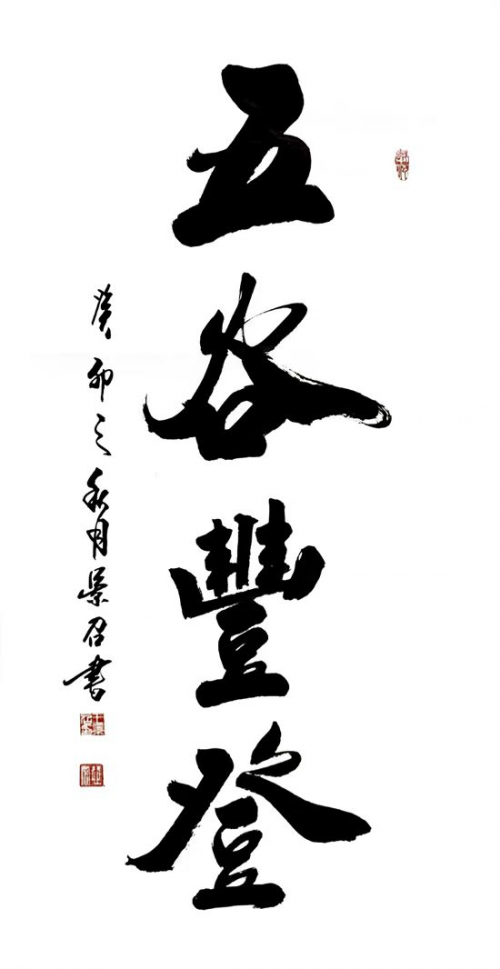 五谷豐登
癸卯之秋月景召書